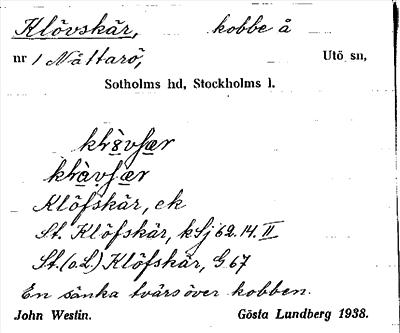 Klövskär, kobbe å
nr 1 Nåttarö, Utö sn,
Sotholms hd, Stockholms l.
Klöfskär, ek
St. Klöfskär, kSj 69.14.II
St. (o.L.) Klöfskär, G.67
En sänka tvärs över kobben.
John Westin. Gösta Lundberg 1938.